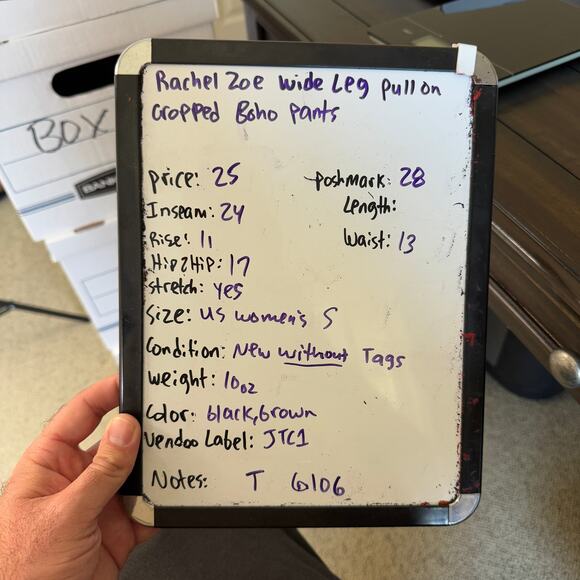 Rachel Zoe Wide Leg pull on
cropped Boho pants
price: 25
poshmark: 28
Inseam: 24
Length:
Rise: 11
Waist: 13
Hip2Hip: 17
stretch: yes
Size: US women's S
Condition: New without Tags
Weight: 10oz
Color: black, brown
Vendoo Label: JTC1
Notes: T 6106
BOX
BANK